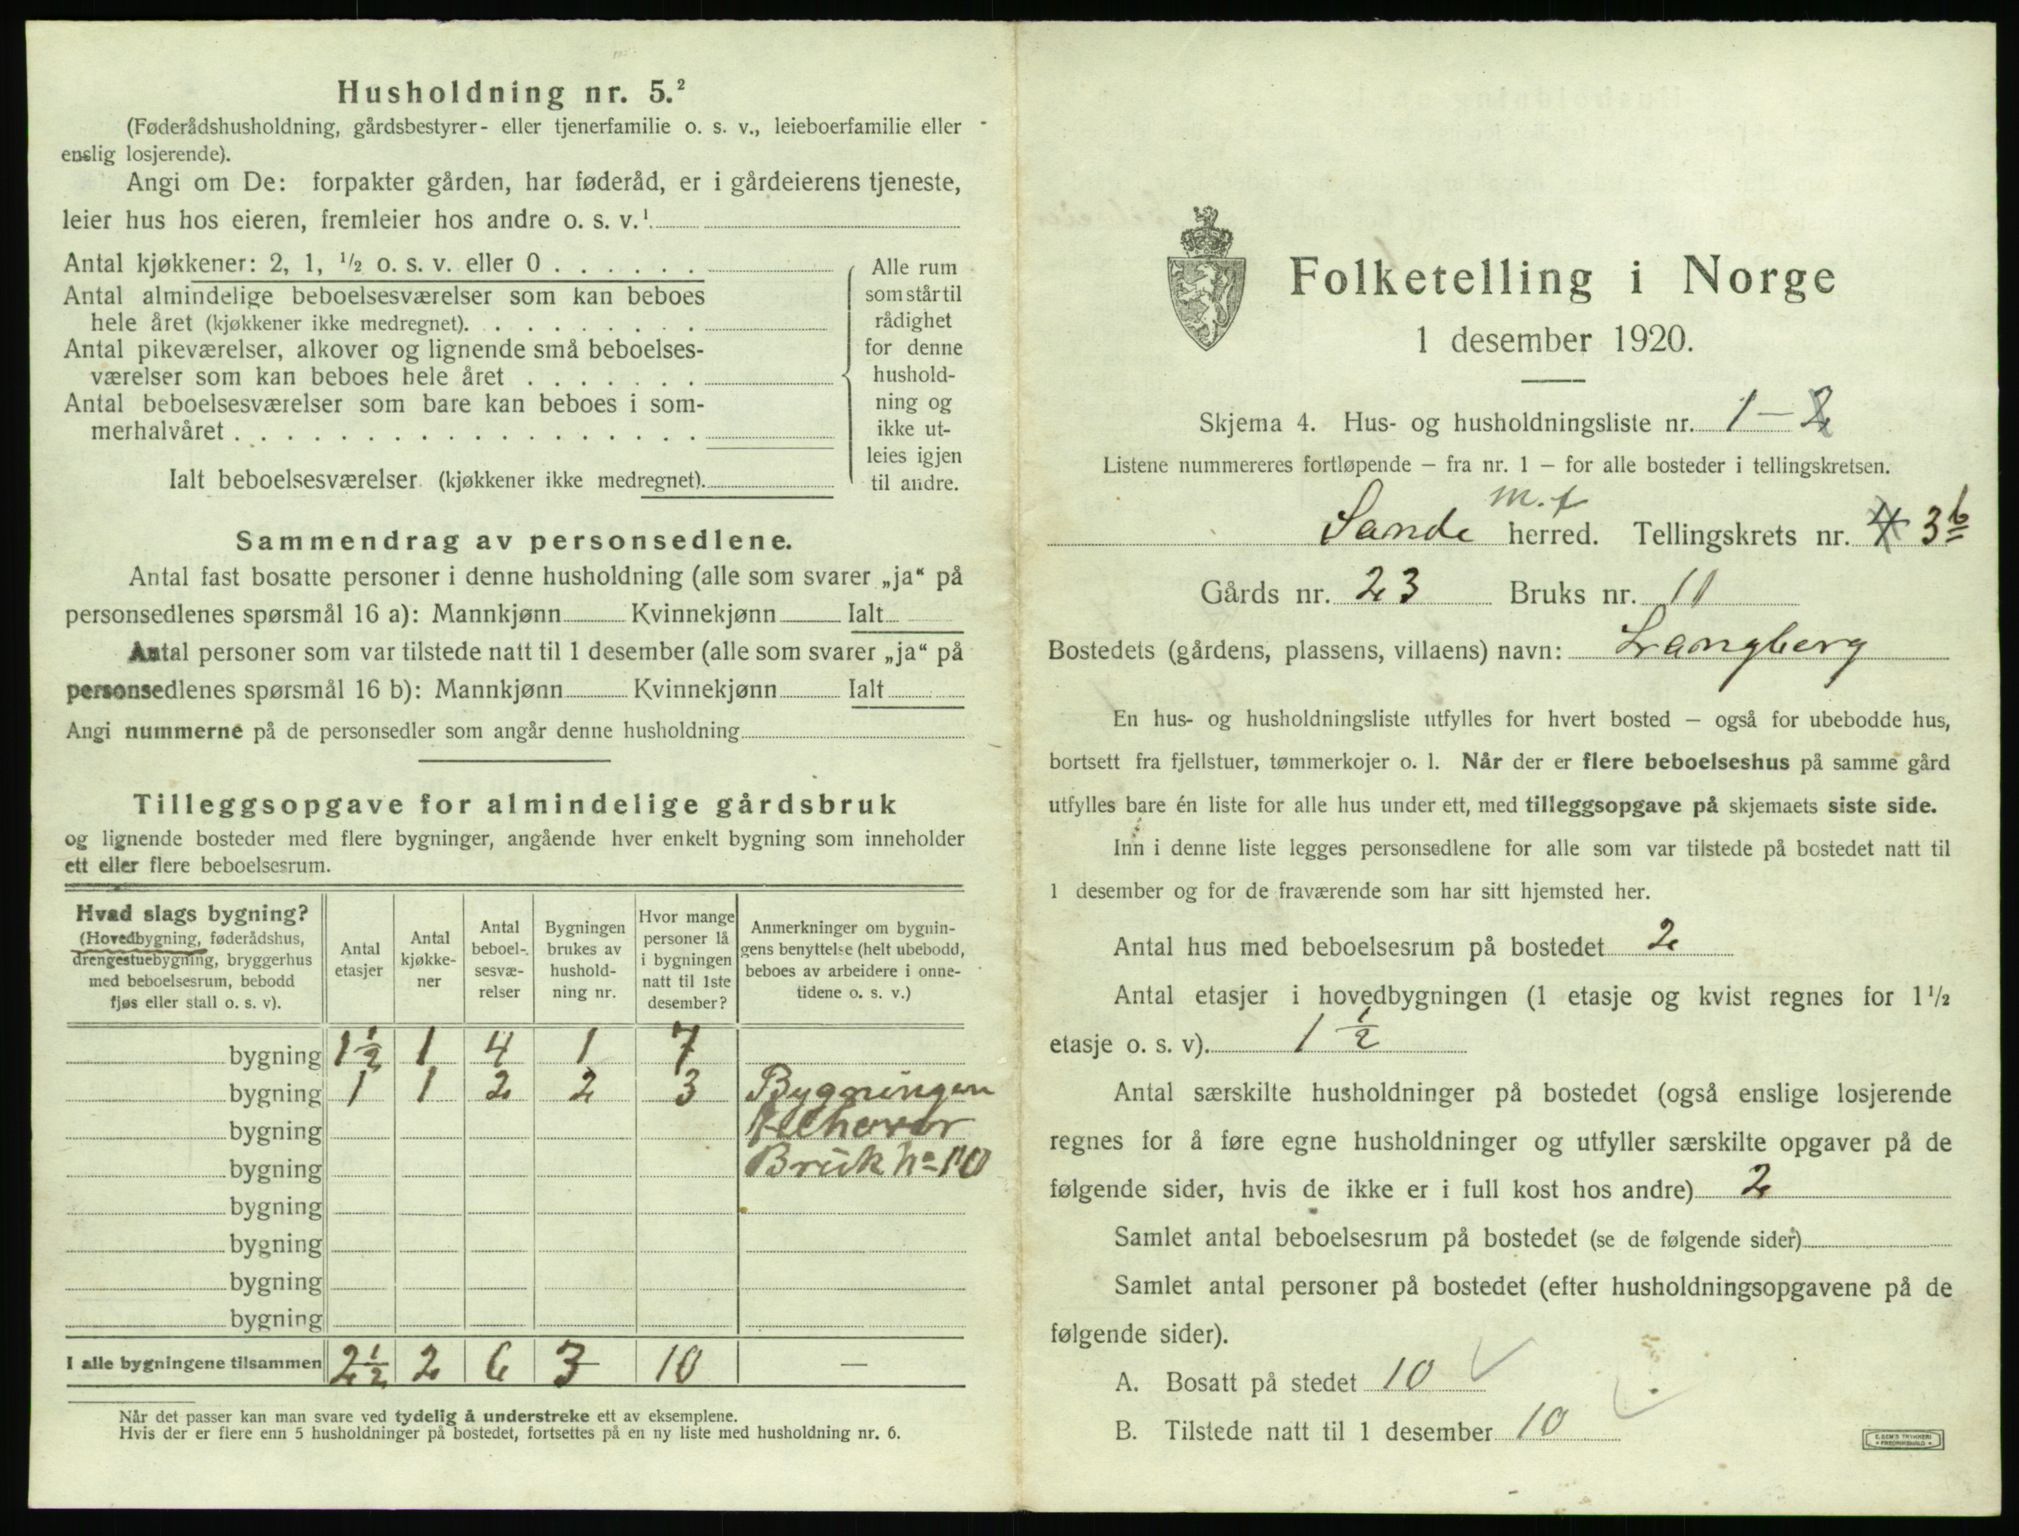 Husholdning nr. 5.²
(Føderådshusholdning, gårdsbestyrer- eller tjenerfamilie o. s. v., leieboerfamilie eller
enslig losjerende).
Angi om De: forpakter gården, har føderåd, er i gårdeierens tjeneste,
leier hus hos eieren, fremleier hos andre o. s. v.¹
Antal kjøkkener: 2, 1, ½ o. s. v. eller 0
Antal almindelige beboelsesværelser som kan beboes
hele året (kjøkkener ikke medregnet).
Antal pikeværelser, alkover og lignende små beboelses-
værelser som kan beboes hele året
Antal beboelsesværelser som bare kan beboes i som-
merhalvåret
Ialt beboelsesværelser (kjøkkener ikke medregnet).
Alle rum
som står til
rådighet
for denne
hushold-
ning og
ikke ut-
leies igjen
til andre.
Sammendrag av personsedlene.
Antal fast bosatte personer i denne husholdning (alle som svarer „ja“ på
personsedlenes spørsmål 16 a): Mannkjønn Kvinnekjønn Ialt
Antal personer som var tilstede natt til 1 desember (alle som svarer „ja“ på
personsedlenes spørsmål 16 b): Mannkjønn Kvinnekjønn Ialt
Angi nummerne på de personsedler som angår denne husholdning
Tilleggsopgave for almindelige gårdsbruk
og lignende bosteder med flere bygninger, angående hver enkelt bygning som inneholder
ett eller flere beboelsesrum.
Hvad slags bygning?
(Hovedbygning, føderådshus,
drengestuebygning, bryggerhus
med beboelsesrum, bebodd
fjøs eller stall o. s. v).
Antal
etasjer
Antal
kjøkke-
ner
Antal
beboel-
sesvæ-
relser
Bygningen
brukes av
hushold-
ning nr.
Hvor mange
personer lå
i bygningen
natt til 1ste
desember?
Anmerkninger om bygnin-
gens benyttelse (helt ubebodd,
beboes av arbeidere i onne-
tidene o. s. v.)
bygning 1½ 1 4 1 7
bygning 1 1 2 2 3 Bygningen
bygning tilhører
bygning Bruk No 10
bygning
bygning
bygning
bygning
I alle bygningene tilsammen 2½ 2 6 3 10 —
Når det passer kan man svare ved tydelig å understreke ett av eksemplene.
Hvis der er flere enn 5 husholdninger på bostedet, fortsettes på en ny liste med husholdning nr. 6.
Folketelling i Norge
1 desember 1920.
Skjema 4. Hus- og husholdningsliste nr. 1 — 2
Listene nummereres fortløpende – fra nr. 1 – for alle bosteder i tellingskretsen.
m. f
Sande herred. Tellingskrets nr. 4 3b
Gårds nr. 23 Bruks nr. 11
Bostedets (gårdens, plassens, villaens) navn: Langberg
En hus- og husholdningsliste utfylles for hvert bosted – også for ubebodde hus,
bortsett fra fjellstuer, tømmerkojer o. l. Når der er flere beboelseshus på samme gård
utfylles bare én liste for alle hus under ett, med tilleggsopgave på skjemaets siste side.
Inn i denne liste legges personsedlene for alle som var tilstede på bostedet natt til
1 desember og for de fraværende som har sitt hjemsted her.
Antal hus med beboelsesrum på bostedet 2
Antal etasjer i hovedbygningen (1 etasje og kvist regnes for 1½
etasje o. s. v). 1½
Antal særskilte husholdninger på bostedet (også enslige losjerende
regnes for å føre egne husholdninger og utfyller særskilte opgaver på de
følgende sider, hvis de ikke er i full kost hos andre) 2
Samlet antal beboelsesrum på bostedet (se de følgende sider)
Samlet antal personer på bostedet (efter husholdningsopgavene på de
følgende sider).
A. Bosatt på stedet 10
B. Tilstede natt til 1 desember 10
E. SEM'S TRYKKERI
FREDRIKSHALD